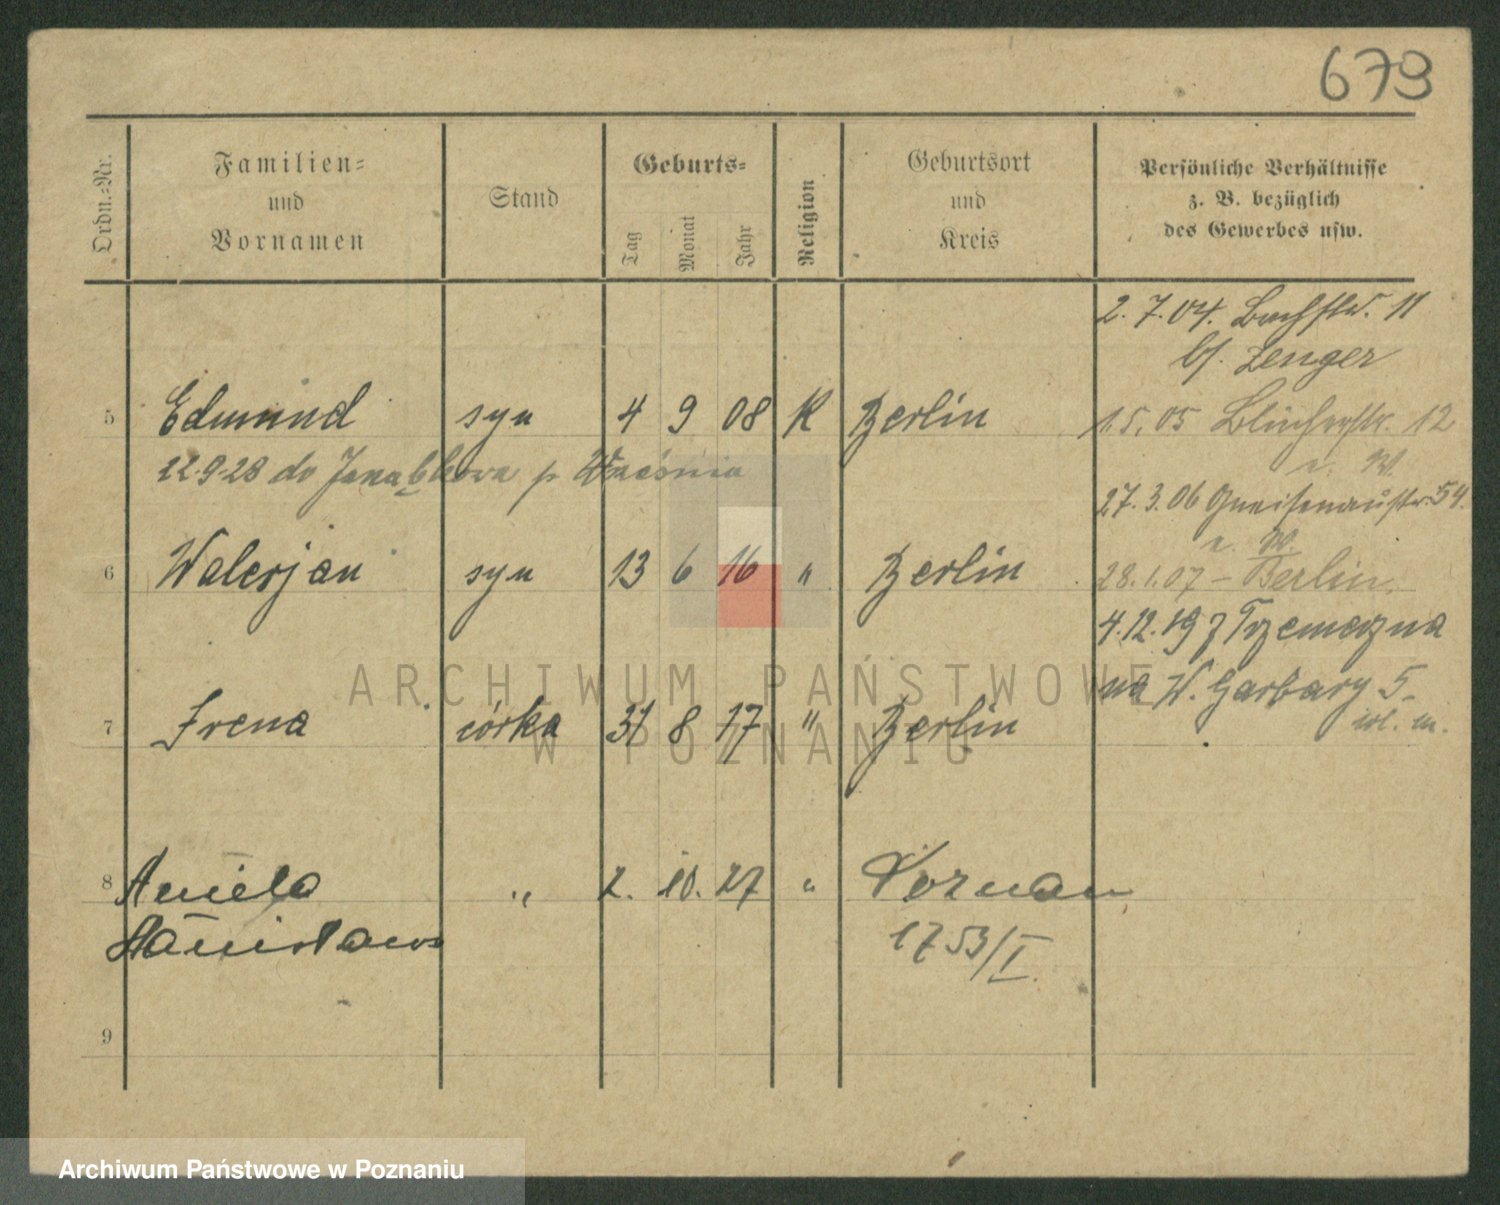 679
Ordn.-Nr.
Familien-
und
Vornamen
Stand
Geburts-
Tag
Monat
Jahr
Religion
Geburtsort
und
Kreis
Persönliche Verhältnisse
z. B. bezüglich
des Gewerbes usw.
2. 7. 04. Bachstr. 11
bf. Zenger
5 Edmund syn 4 9 08 K Berlin
1.5.05 Blücherstr. 12
n. W.
22.9.28 do p
27. 3. 06 Gneisenaustr. 54.
n. W.
6 Walerjan syn 13 6 16 " Berlin
28.1.07 – Berlin.
4.12.19 z Trzemeszna
na W. Garbary 5
wl. m.
7 Irena córka 31 8 17 " Berlin
8 Aniela " 2. 10. 27 " Poznań
Stanisława
1753/I.
9
ARCHIWUM PAŃSTWOWE
W POZNANIU
Archiwum Państwowe w Poznaniu